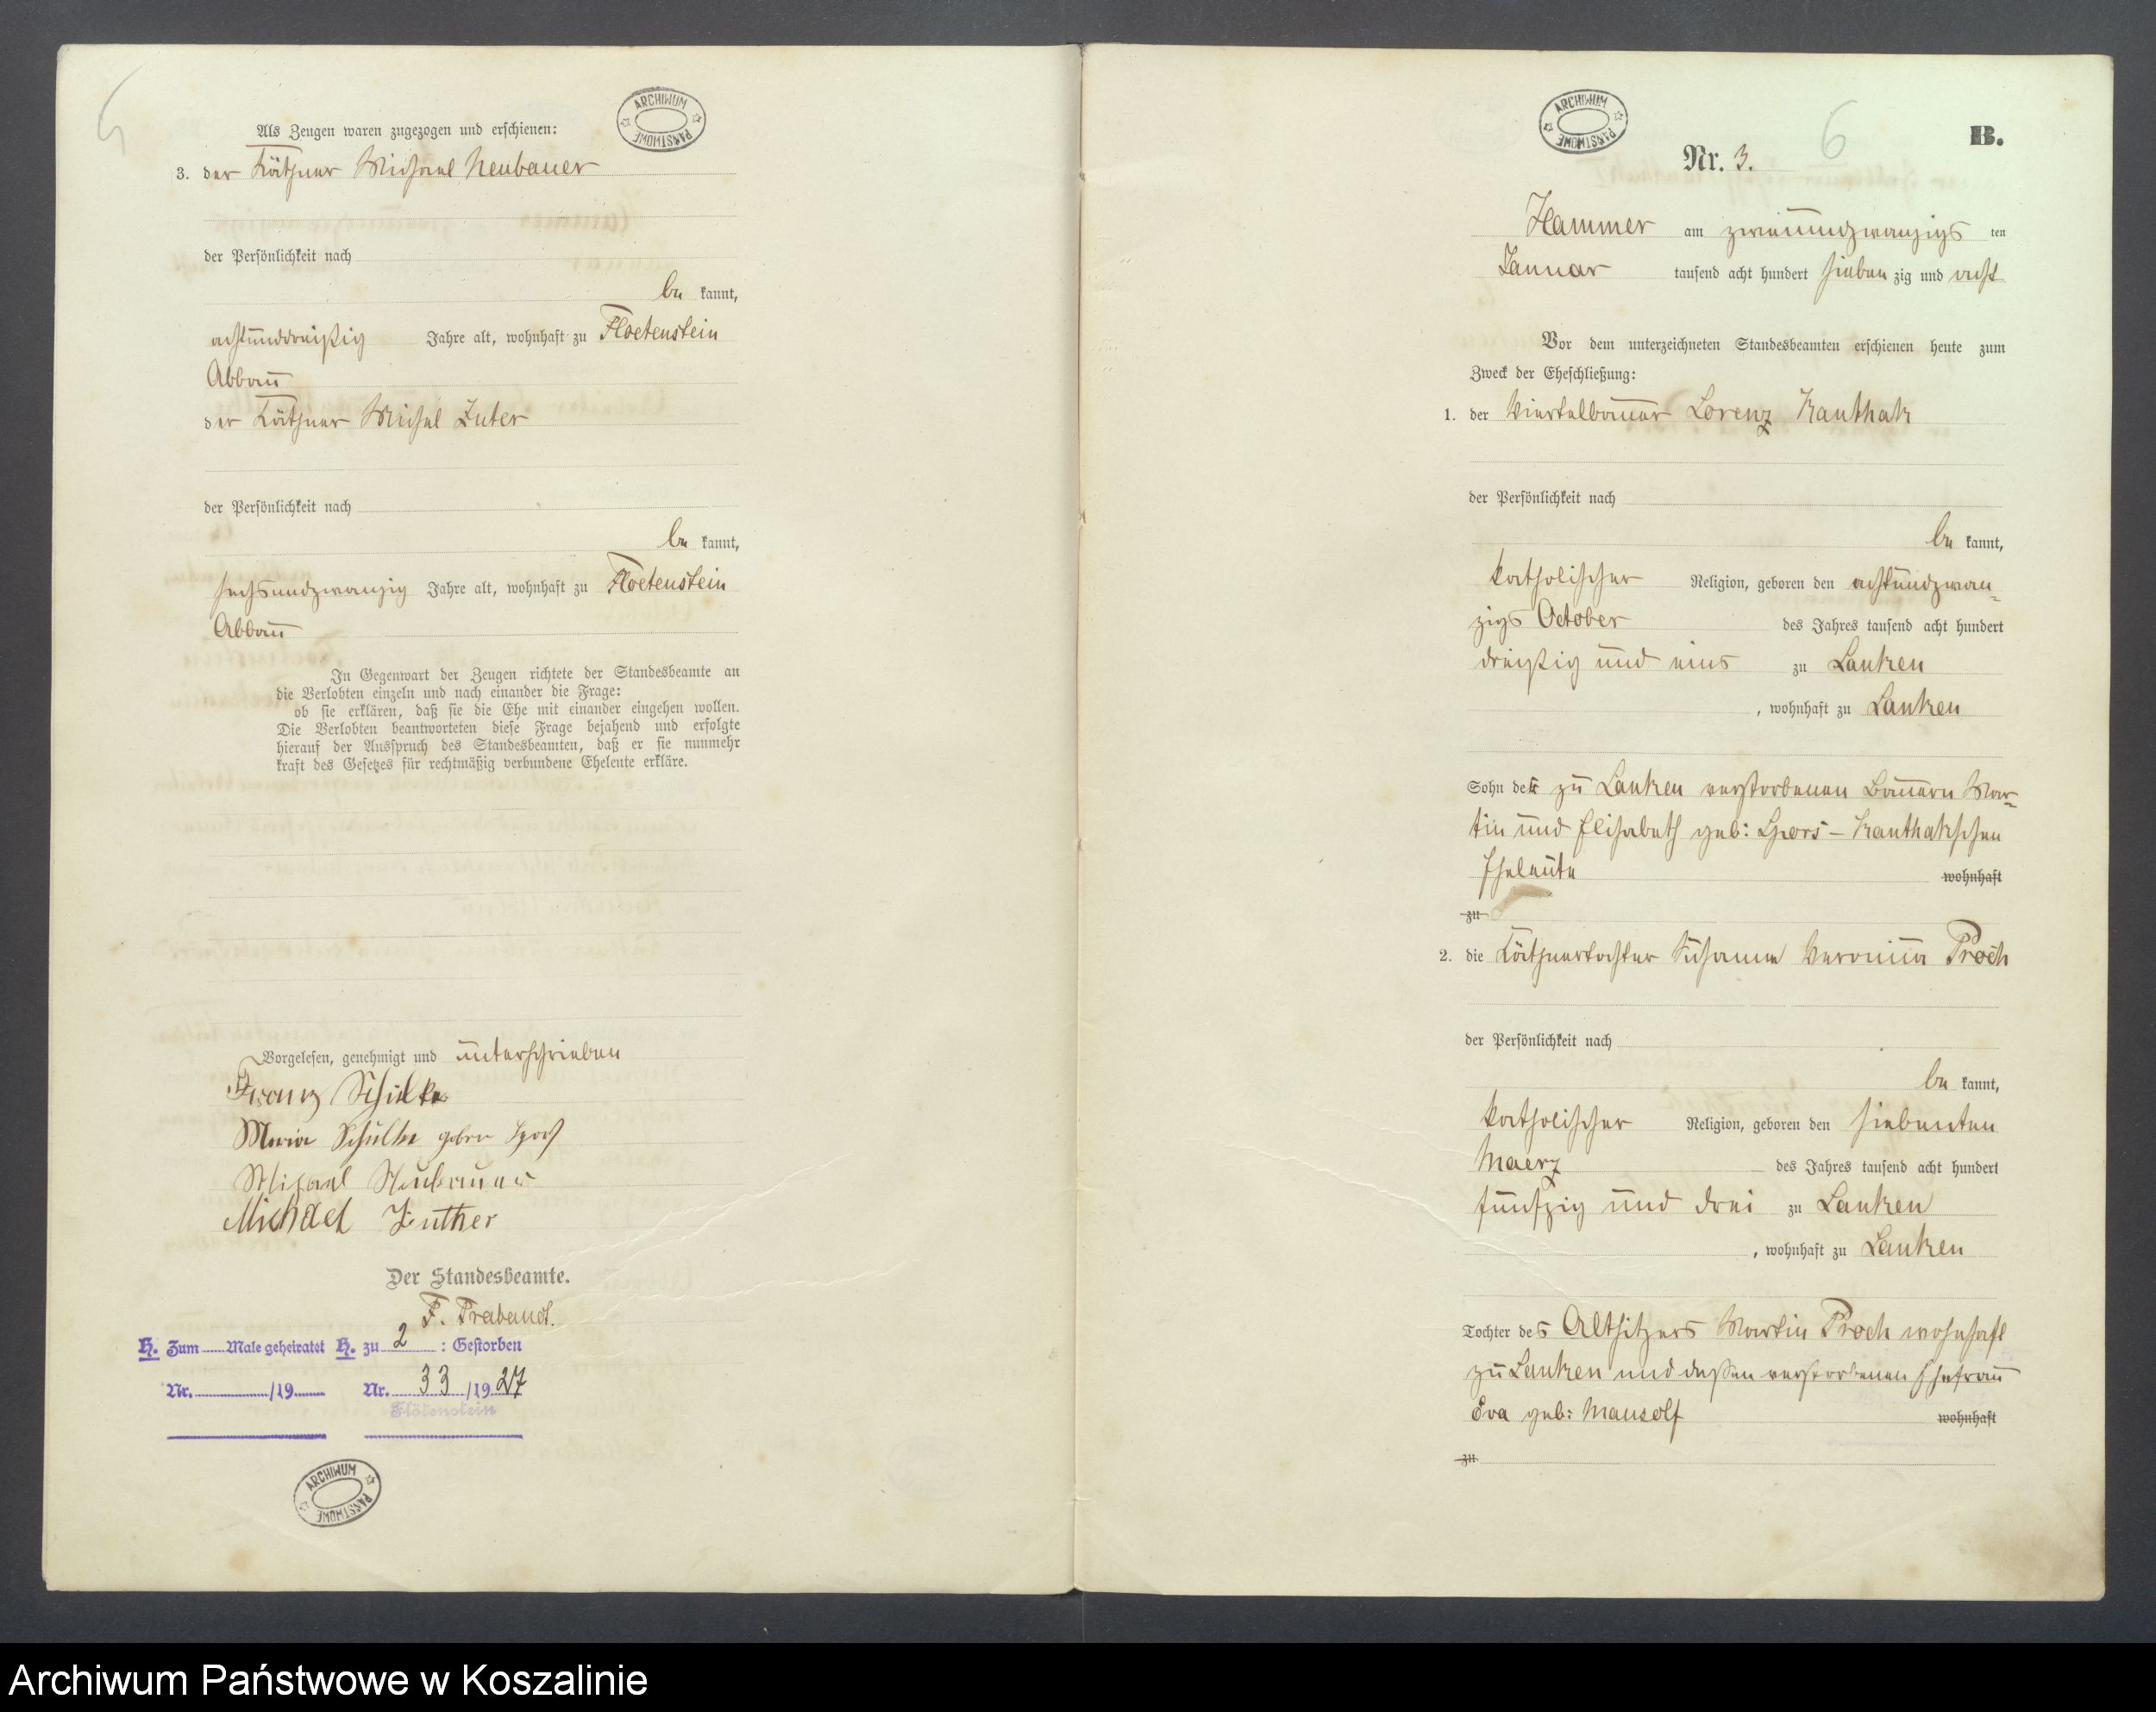 5
Als Zeugen waren zugezogen und erschienen:
ARCHIWUM PAŃSTWOWE
3. der Käthner Michael Neubauer
der Persönlichkeit nach
be kannt,
achtunddreißig Jahre alt, wohnhaft zu Floetenstein
Abbau
der Käthner Michel Zuter
der Persönlichkeit nach
be kannt,
sechsundzwanzig Jahre alt, wohnhaft zu Floetenstein
Abbau
In Gegenwart der Zeugen richtete der Standesbeamte an
die Verlobten einzeln und nach einander die Frage:
ob sie erklären, daß sie die Ehe mit einander eingehen wollen.
Die Verlobten beantworteten diese Frage bejahend und erfolgte
hierauf der Ausspruch des Standesbeamten, daß er sie nunmehr
kraft des Gesetzes für rechtmäßig verbundene Eheleute erkläre.
Vorgelesen, genehmigt und unterschrieben
Franz Schülke
Maria Schülke
Michael Neubauer
Michael Zuther
Der Standesbeamte.
F. Prabandt.
H. Zum Male geheiratet H. zu 2 : Gestorben
Nr. /19 Nr. 33 /19 27
Flötenstein
ARCHIWUM PAŃSTWOWE
ARCHIWUM PAŃSTWOWE
6
B.
Nr. 3.
Hammer am zweiundzwanzigs ten
Januar tausend acht hundert sieben zig und acht
Vor dem unterzeichneten Standesbeamten erschienen heute zum
Zweck der Eheschließung:
1. der Viertelbauer Lorenz Kanthak
der Persönlichkeit nach
be kannt,
katholischer Religion, geboren den achtundzwan-
zigs October des Jahres tausend acht hundert
dreißig und eins zu Lanken
, wohnhaft zu Lanken
Sohn der zu Lanken verstorbenen Bauern Mar-
tin und Elisabeth geb: Spors - Kanthakschen
Eheleute wohnhaft
zu
2. die Käthnertochter Susanna Veronica Proch
der Persönlichkeit nach
be kannt,
katholischer Religion, geboren den siebenten
Maerz des Jahres tausend acht hundert
fünfzig und drei zu Lanken
, wohnhaft zu Lanken
Tochter des Altsitzers Martin Proch wohnhaft
zu Lanken und dessen verstorbenen Ehefrau
Eva geb: Mausolf wohnhaft
zu
Archiwum Państwowe w Koszalinie